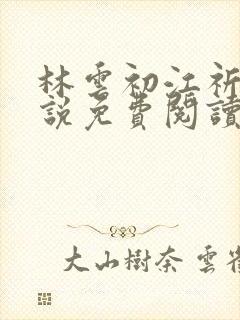 林雲初江祈
說免費閱讀
大山樹奈 雲雀